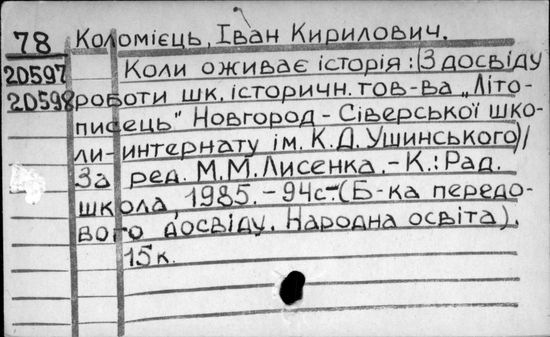 78 Коломієць, Іван Кирилович.
20597 Коли оживає історія: (З досвіду
20598 роботи шк. історичн. тов-ва „Літо-
писець" Новгород-Сіверської шко-
ли-интернату ім. К.Д. Ушинського)/
За ред. М.М. Лисенка.-К.: Рад.
школа, 1985.-94с-(Б-ка передо-
вого досвіду. Народна освіта).
15к.